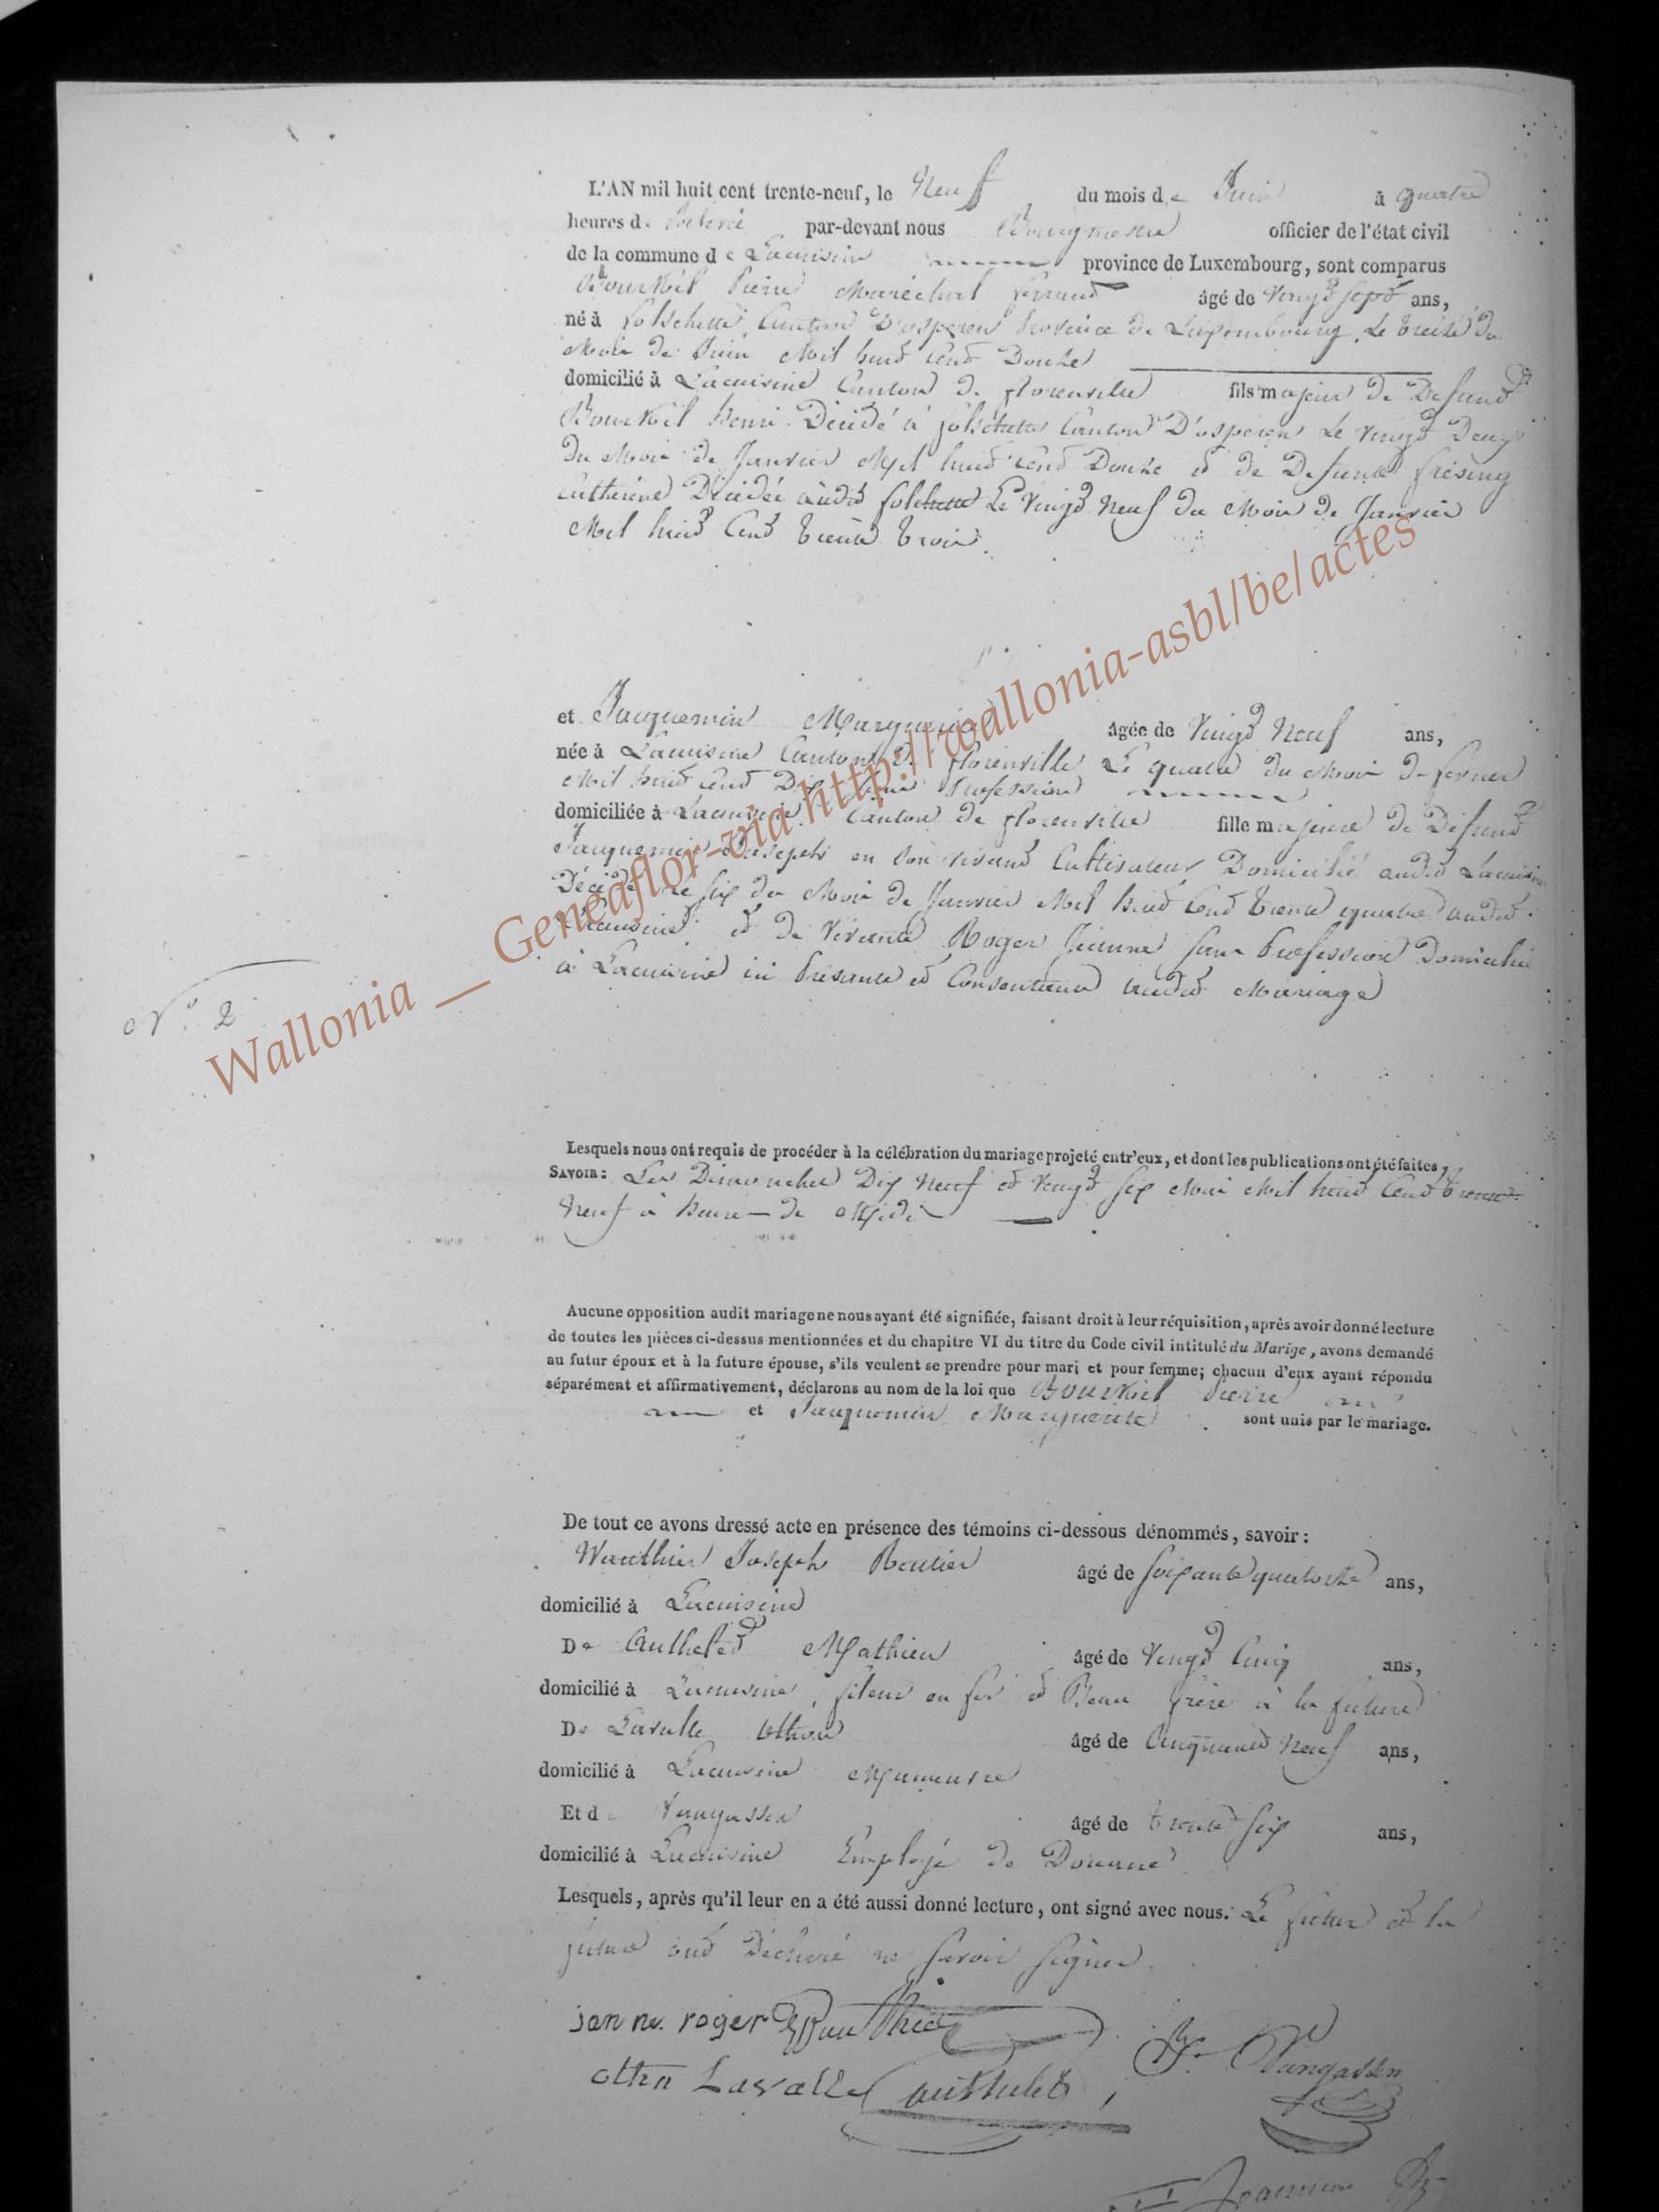 L'AN mil huit cent trente-neuf, le Neuf du mois de Juin à quatre
heures de par-devant nous Bourgmestre officier de l'état civil
de la commune de Lacuisine province de Luxembourg, sont comparus
Bourkel Pierre Maréchal ferrand âgé de Vingt Sept ans,
né à folschette, Canton D'osperen Province de Luxembourg, Le treize du
Mois de Juin Mil huit Cent Douze
domicilié à Lacuisine Canton de florenville fils majeur de Defunt
Bourkel henri Décédé à folschette Canton D'osperen Le Vingt Deux
du Mois de Janvier Mil huit Cent Douze et de Defunte frésing
Catherine Décédée audit folschette Le Vingt Neuf du Mois de Janvier
Mil huit Cent trente trois.
et Jacquemin Marguerite âgée de Vingt Neuf ans,
née à Lacuisine Canton de florenville Le quatre du Mois de
Mil huit Cent Dix Profession
domiciliée à Lacuisine Canton de florenville fille majeure de Défunt
Jacquemin Joseph en Son vivant Cultivateur Domicilié audit Lacuisine
Décédé Le Six du Mois de Janvier Mil huit Cent trente quatre audit
Lacuisine et de Vivante Roger Jeanne Sans Profession Domiciliée
à Lacuisine ici Présente et Consentante audit Mariage
N.° 2
Lesquels nous ont requis de procéder à la célébration du mariage projeté entr'eux, et dont les publications ont été faites,
SAVOIR: Les Dimanches Dix Neuf et Vingt Six Mai Mil huit Cent trente
Neuf à heure de Midi
Aucune opposition audit mariage ne nous ayant été signifiée, faisant droit à leur réquisition, après avoir donné lecture
de toutes les pièces ci-dessus mentionnées et du chapitre VI du titre du Code civil intitulé du Marige, avons demandé
au futur époux et à la future épouse, s'ils veulent se prendre pour mari et pour femme; chacun d'eux ayant répondu
séparément et affirmativement, déclarons au nom de la loi que Bourkel Pierre
et Jacquemin Marguerite sont unis par le mariage.
De tout ce avons dressé acte en présence des témoins ci-dessous dénommés, savoir:
Wauthier Joseph Rentier âgé de Soixante quatorze ans,
domicilié à Lacuisine
De Authelet Mathieu âgé de Vingt Cinq ans,
domicilié à Lacuisine, fileur en fer et Beau frère à la future
De Lavalle Othon âgé de Cinquante Neuf ans,
domicilié à Lacuisine Manoeuvre
Et de Vangassen âgé de trente Six ans,
domicilié à Lacuisine Employé de Douane
Lesquels, après qu'il leur en a été aussi donné lecture, ont signé avec nous. Le futur et la
future ont Déclaré ne Savoir Signer
janne roger Wauthier
otton Lavalle authelet Vangassen
Wallonia __ Geneaflor-via http://wallonia-asbl/be/actes